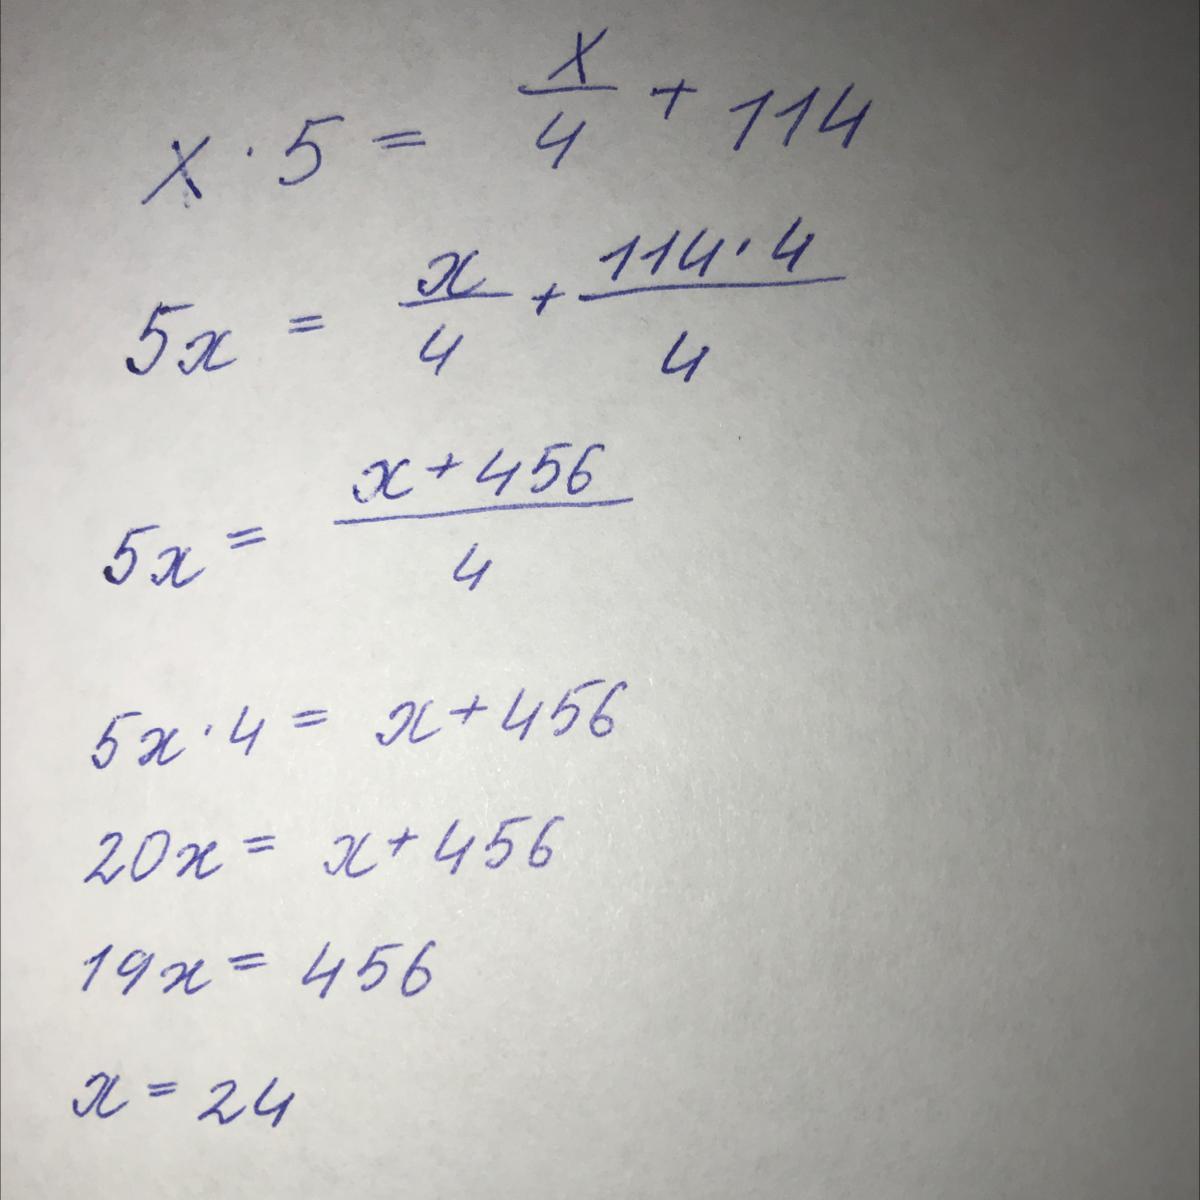 x · 5 = x/4 + 114
5x = x/4 + 114·4/4
5x = x+456/4
5x·4 = x+456
20x = x+456
19x = 456
x = 24